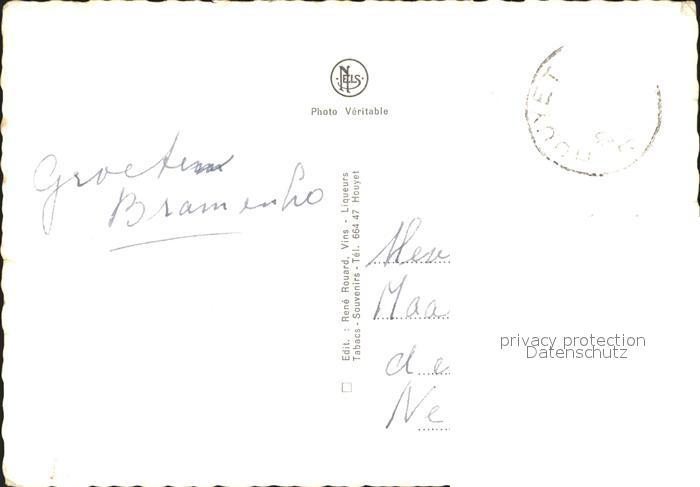 NELS
Photo Véritable
HOUYET
Groeten
Edit. : René Rouard, Vins - Liqueurs
Tabacs - Souvenirs - Tél. 664 47 Houyet
Maa
de
Ne
privacy protection
Datenschutz